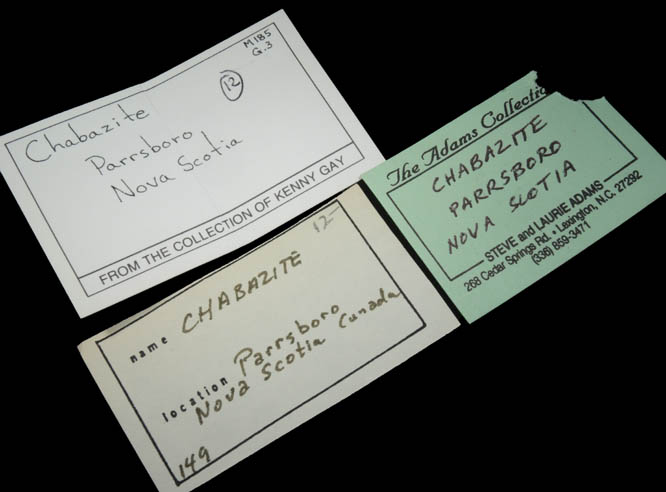 M185
G.3
12
Chabazite
Parrsboro
Nova Scotia
FROM THE COLLECTION OF KENNY GAY
The Adams Collectio
CHABAZITE
PARRSBORO
NOVA SCOTIA
STEVE and LAURIE ADAMS
268 Cedar Springs Rd. • Lexington, N.C. 27292
(336) 859-3471
12-
name CHABAZITE
location Parrsboro
Nova Scotia Canada
149